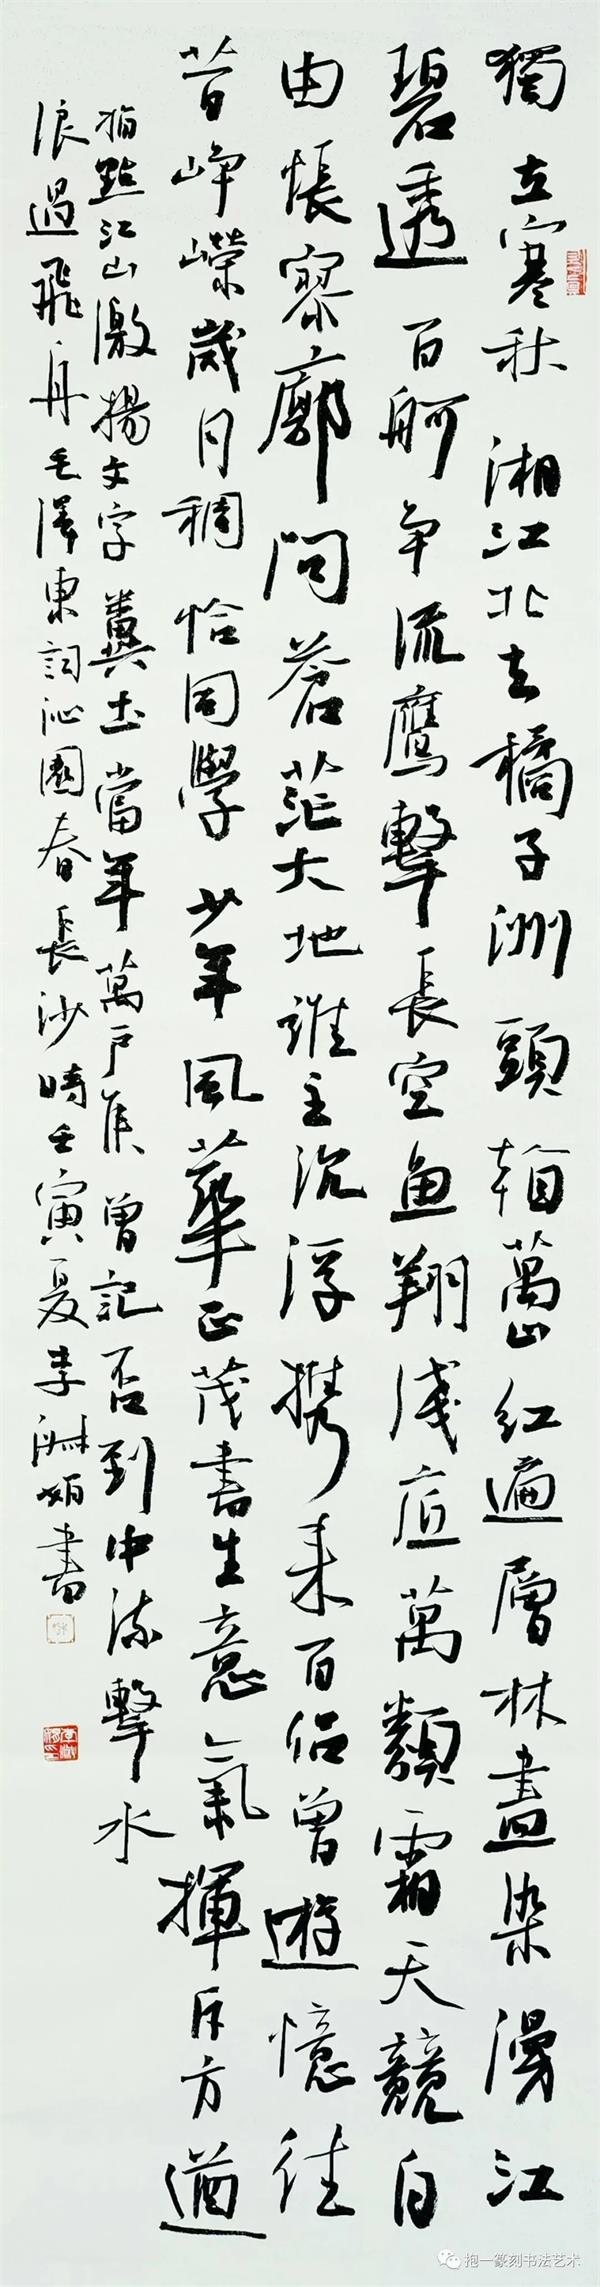 獨立寒秋湘江北去橘子洲頭看萬山紅遍層林盡染漫江
碧透百舸争流鷹擊長空魚翔淺底萬類霜天競自
由悵寥廓問蒼茫大地誰主沉浮携来百侣曾遊憶往
昔崢嶸歲月稠恰同學少年風華正茂書生意氣揮斥方遒
指點江山激揚文字糞土當年萬户侯曾記否到中流擊水
浪遏飛舟毛澤東詞沁園春長沙時壬寅夏李書
抱一篆刻书法艺术